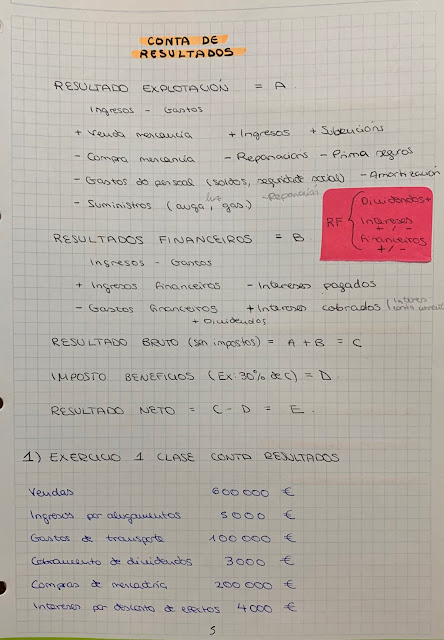 CONTA DE
RESULTADOS
RESULTADO EXPLOTACIÓN = A
Ingresos - Gastos
+ Venda mercancía + Ingresos + Subencións
- Compra mercancía - Reparacións - Prima seguros
- Gastos do persoal (soldos, seguridade social) - Amortización
- Suministros (auga, luz, gas.) - Reparación
RF { Dividendos +
Intereses
+ / -
Financeiros
+ / -
RESULTADOS FINANCEIROS = B
Ingresos - Gastos
+ Ingresos financeiros - Intereses pagados
- Gastos financeiros + Intereses cobrados (Interes
+ Dividendos
RESULTADO BRUTO (sen impostos) = A + B = C
IMPOSTO BENEFICIOS (EX: 30% de C) = D
RESULTADO NETO = C - D = E.
1) EXERCICIO 1 CLASE CONTA RESULTADOS
Vendas 600 000 €
Ingresos por alugamentos 5000 €
Gastos de transporte 100 000 €
Cobramento de dividendos 3000 €
Compras de mercadría 200 000 €
Intereses por desconto de efectos 4000 €
5